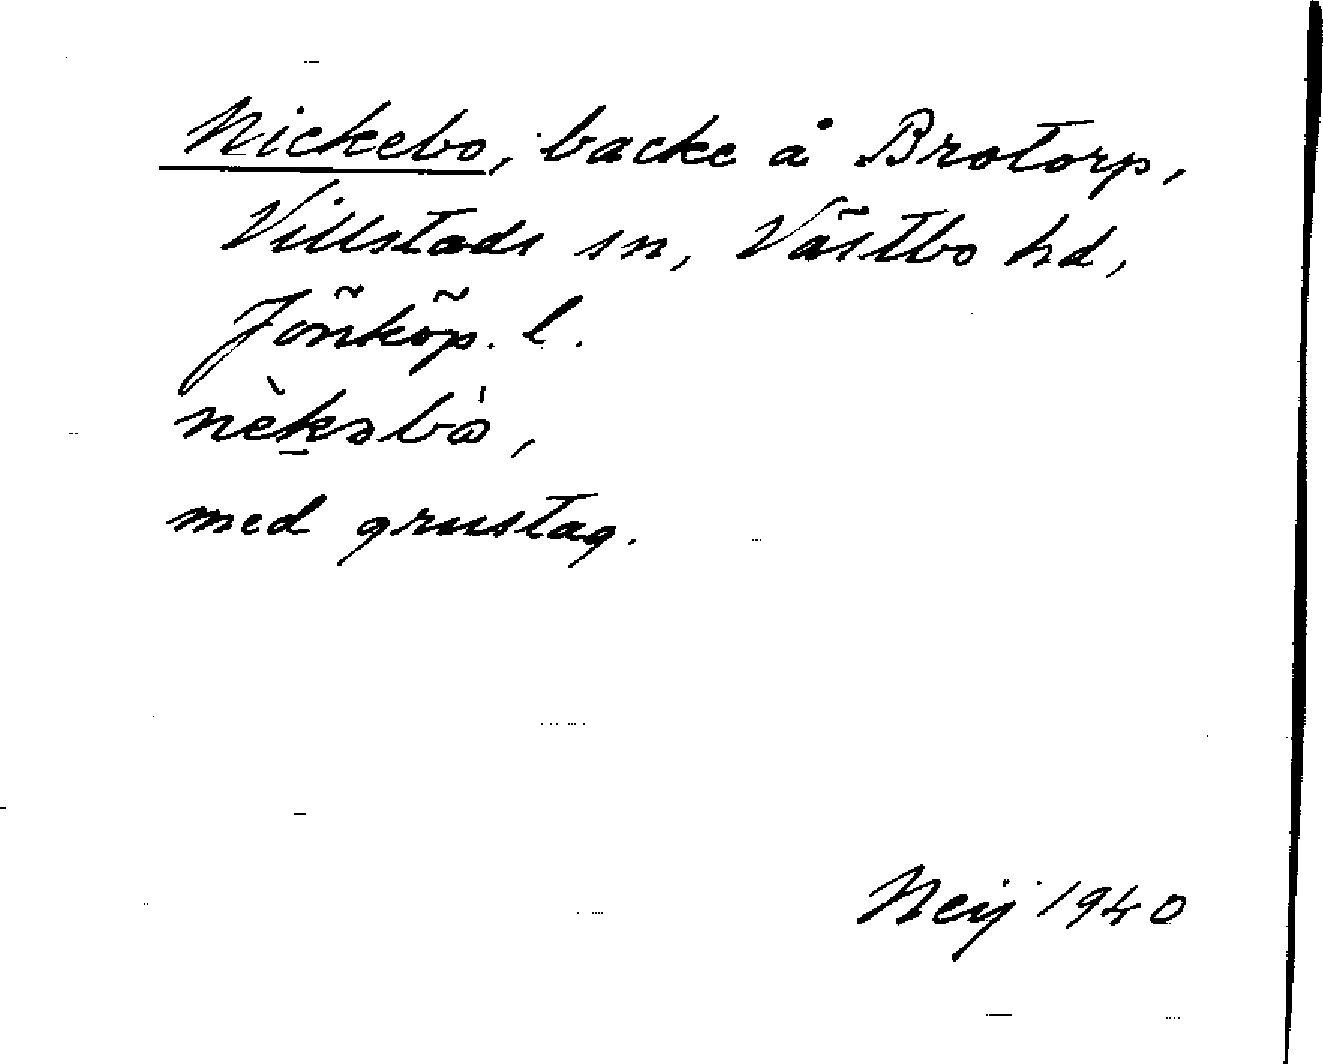 Nickebo, backe å Brotorp,
Villstads sn, Västbo hd,
Jönköp. l.
nèkəbó,
med grustag.
Neij 1940